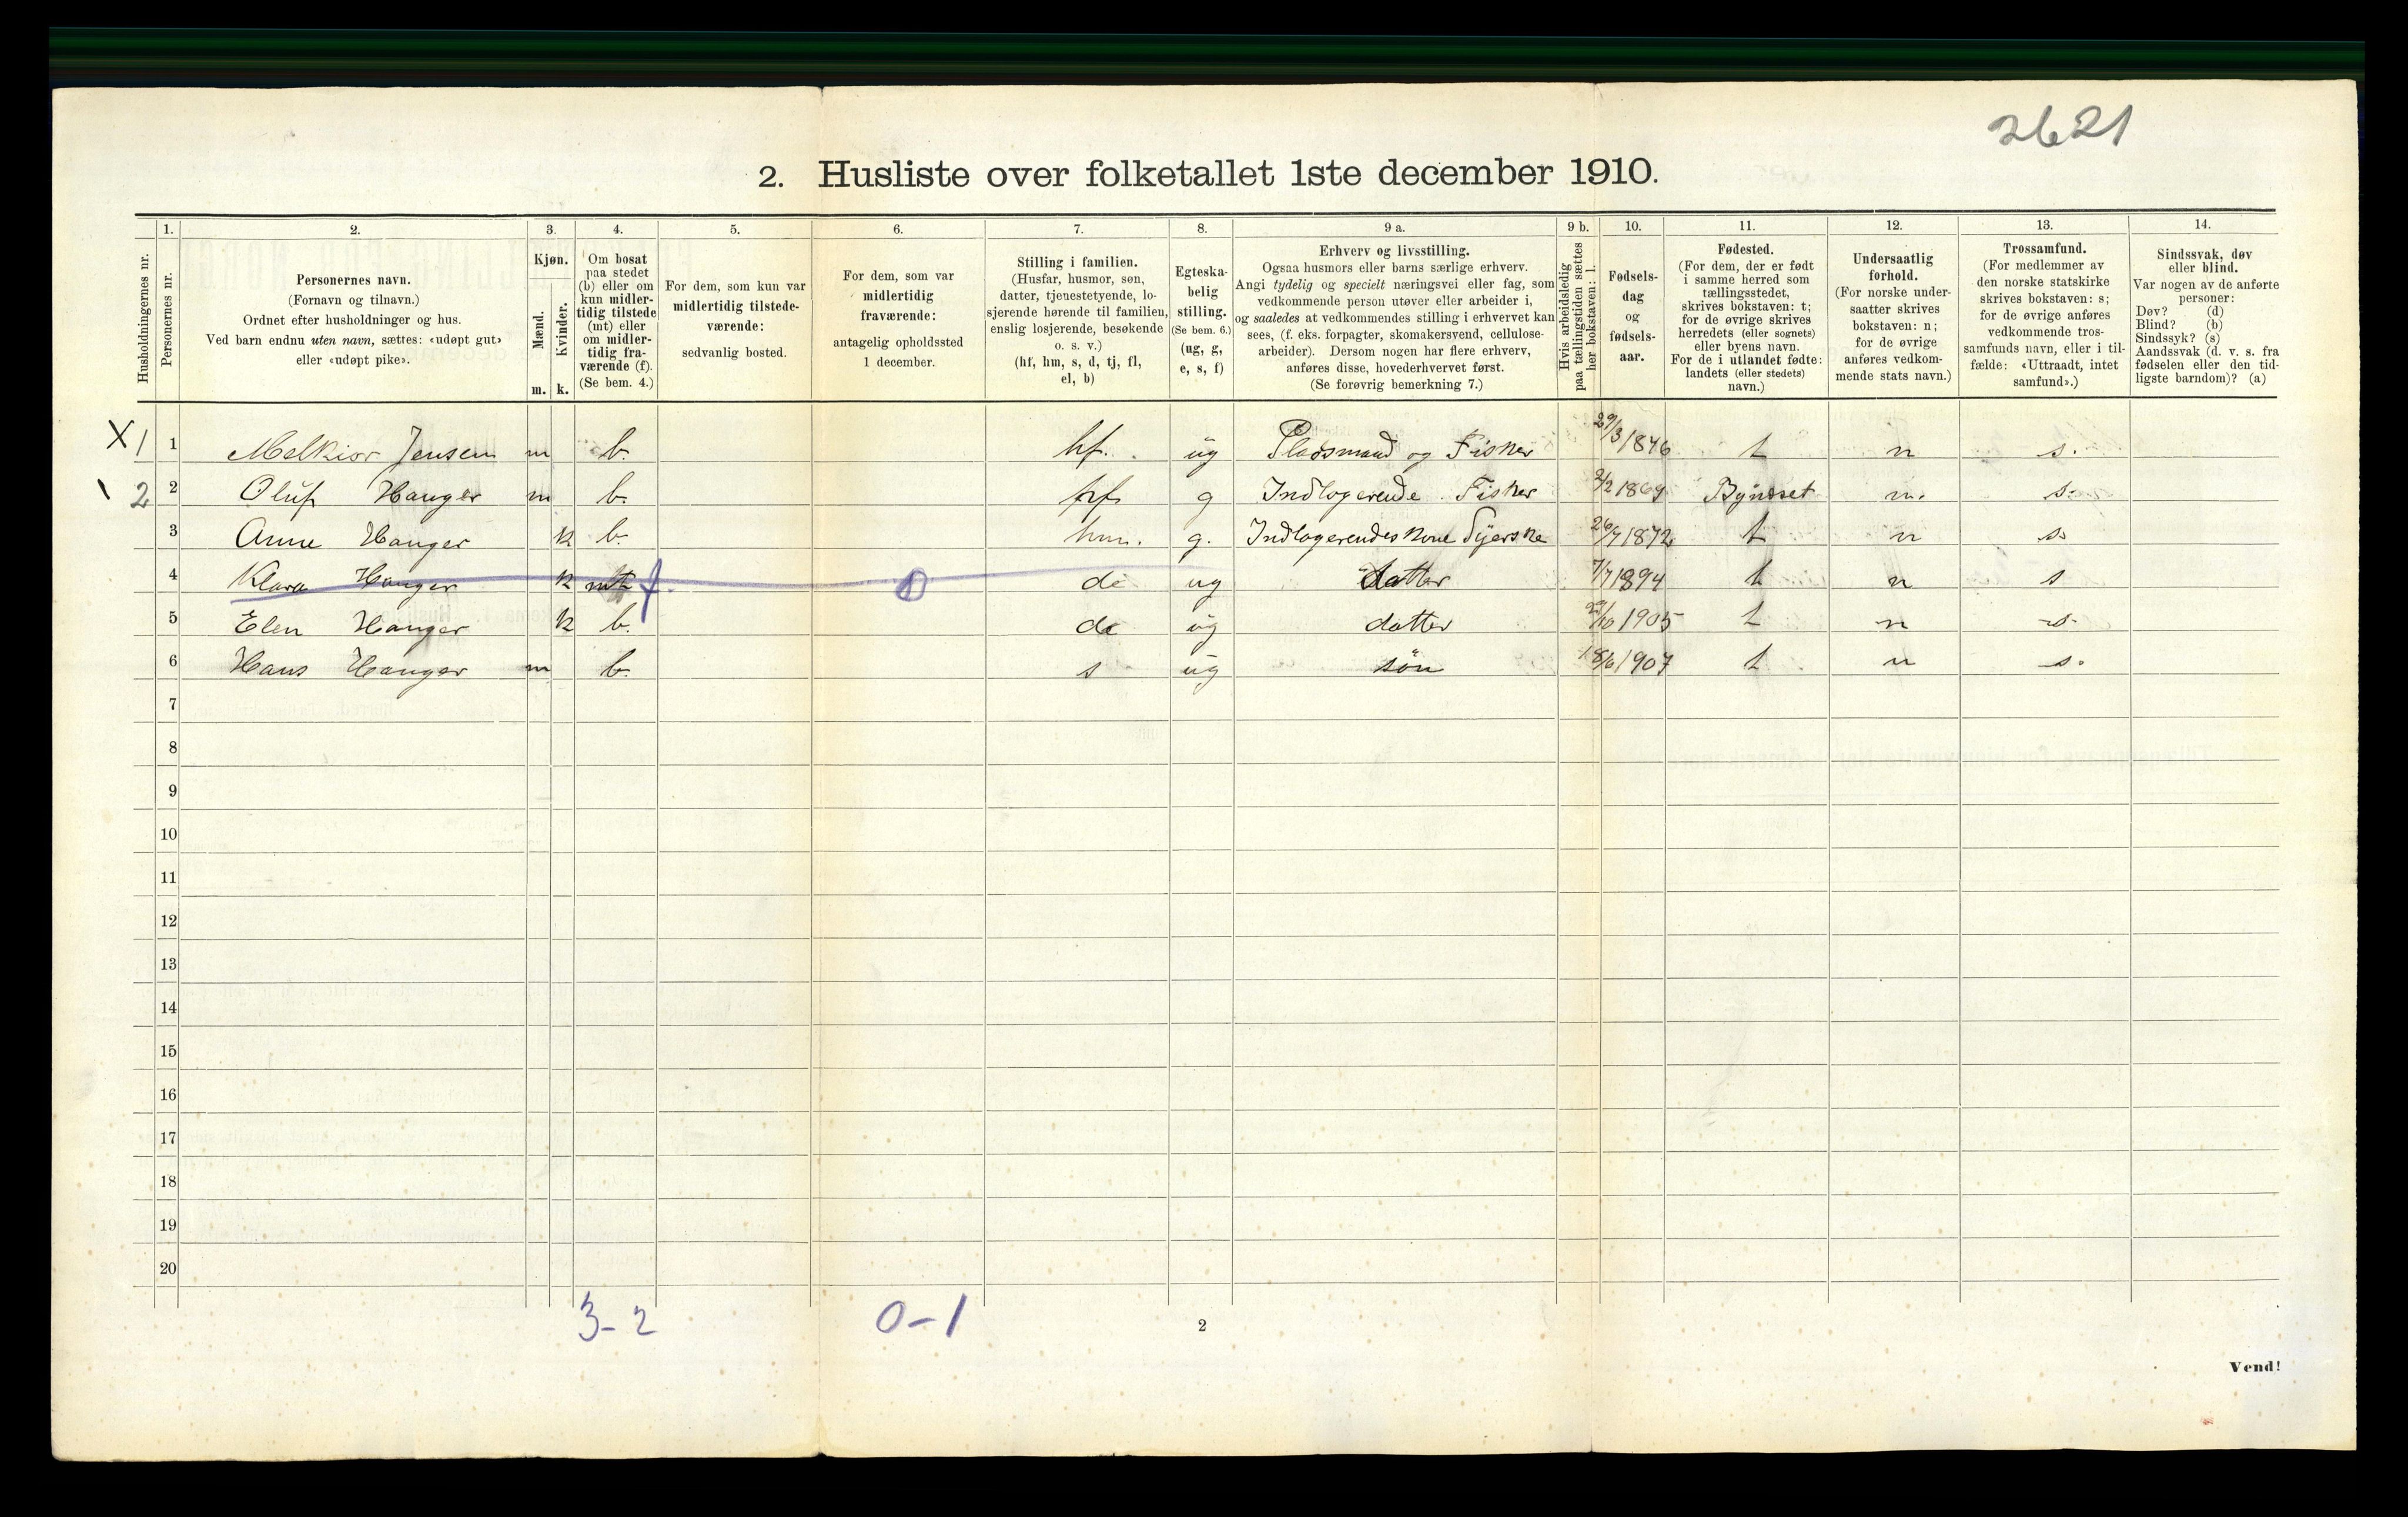 2621
2. Husliste over folketallet 1ste december 1910.
Husholdningernes nr.
1. Personernes nr.
2. Personernes navn.
(Fornavn og tilnavn.)
Ordnet efter husholdninger og hus.
Ved barn endnu uten navn, sættes: «udøpt gut»
eller «udøpt pike».
3. Kjøn.
Mænd. m.
Kvinder. k.
4. Om bosat
paa stedet
(b) eller om
kun midler-
tidig tilstede
(mt) eller
om midler-
tidig fra-
værende (f).
(Se bem. 4.)
5. For dem, som kun var
midlertidig tilstede-
værende:
sedvanlig bosted.
6. For dem, som var
midlertidig
fraværende:
antagelig opholdssted
1 december.
7. Stilling i familien.
(Husfar, husmor, søn,
datter, tjenestetyende, lo-
sjerende hørende til familien,
enslig losjerende, besøkende
o. s. v.)
(hf, hm, s, d, tj, fl,
el, b)
8. Egteska-
belig
stilling.
(Se bem. 6.)
(ug, g,
e, s, f)
9 a. Erhverv og livsstilling.
Ogsaa husmors eller barns særlige erhverv.
Angi tydelig og specielt næringsvei eller fag, som
vedkommende person utøver eller arbeider i,
og saaledes at vedkommendes stilling i erhvervet kan
sees, (f. eks. forpagter, skomakersvend, cellulose-
arbeider). Dersom nogen har flere erhverv,
anføres disse, hovederhvervet først.
(Se forøvrig bemerkning 7.)
9 b. Hvis arbeidsledig
paa tællingstiden sættes
her bokstaven: l.
10. Fødsels-
dag
og
fødsels-
aar.
11. Fødested.
(For dem, der er født
i samme herred som
tællingsstedet,
skrives bokstaven: t;
for de øvrige skrives
herredets (eller sognets)
eller byens navn.
For de i utlandet fødte:
landets (eller stedets)
navn.)
12. Undersaatlig
forhold.
(For norske under-
saatter skrives
bokstaven: n;
for de øvrige
anføres vedkom-
mende stats navn.)
13. Trossamfund.
(For medlemmer av
den norske statskirke
skrives bokstaven: s;
for de øvrige anføres
vedkommende tros-
samfunds navn, eller i til-
fælde: «Uttraadt, intet
samfund».)
14. Sindssvak, døv
eller blind.
Var nogen av de anførte
personer:
Døv? (d)
Blind? (b)
Sindssyk? (s)
Aandssvak (d. v. s. fra
fødselen eller den tid-
ligste barndom)? (a)
X 1 1 Melkior Jensen m b. hf. ug Pladsmand og Fisker 29/3 1846 t n s.
2 2 Oluf Hanger m b. hf g Indlogerende Fisker 2/2 1869 Bynesset n. s.
3 Anne Hanger k b. hm. g. Indlogerendes kone Syerske 26/7 1872 t n s.
4 Klara Hanger k mt f. 0 de ug datter 7/7 1894 t n s
5 Elen Hanger k b. de ug datter 29/10 1905 t n s.
6 Hans Hanger m b. s ug søn 18/6 1907 t n s.
7
8
9
10
11
12
13
14
15
16
17
18
19
20
3-2 0-1
2
Vend!